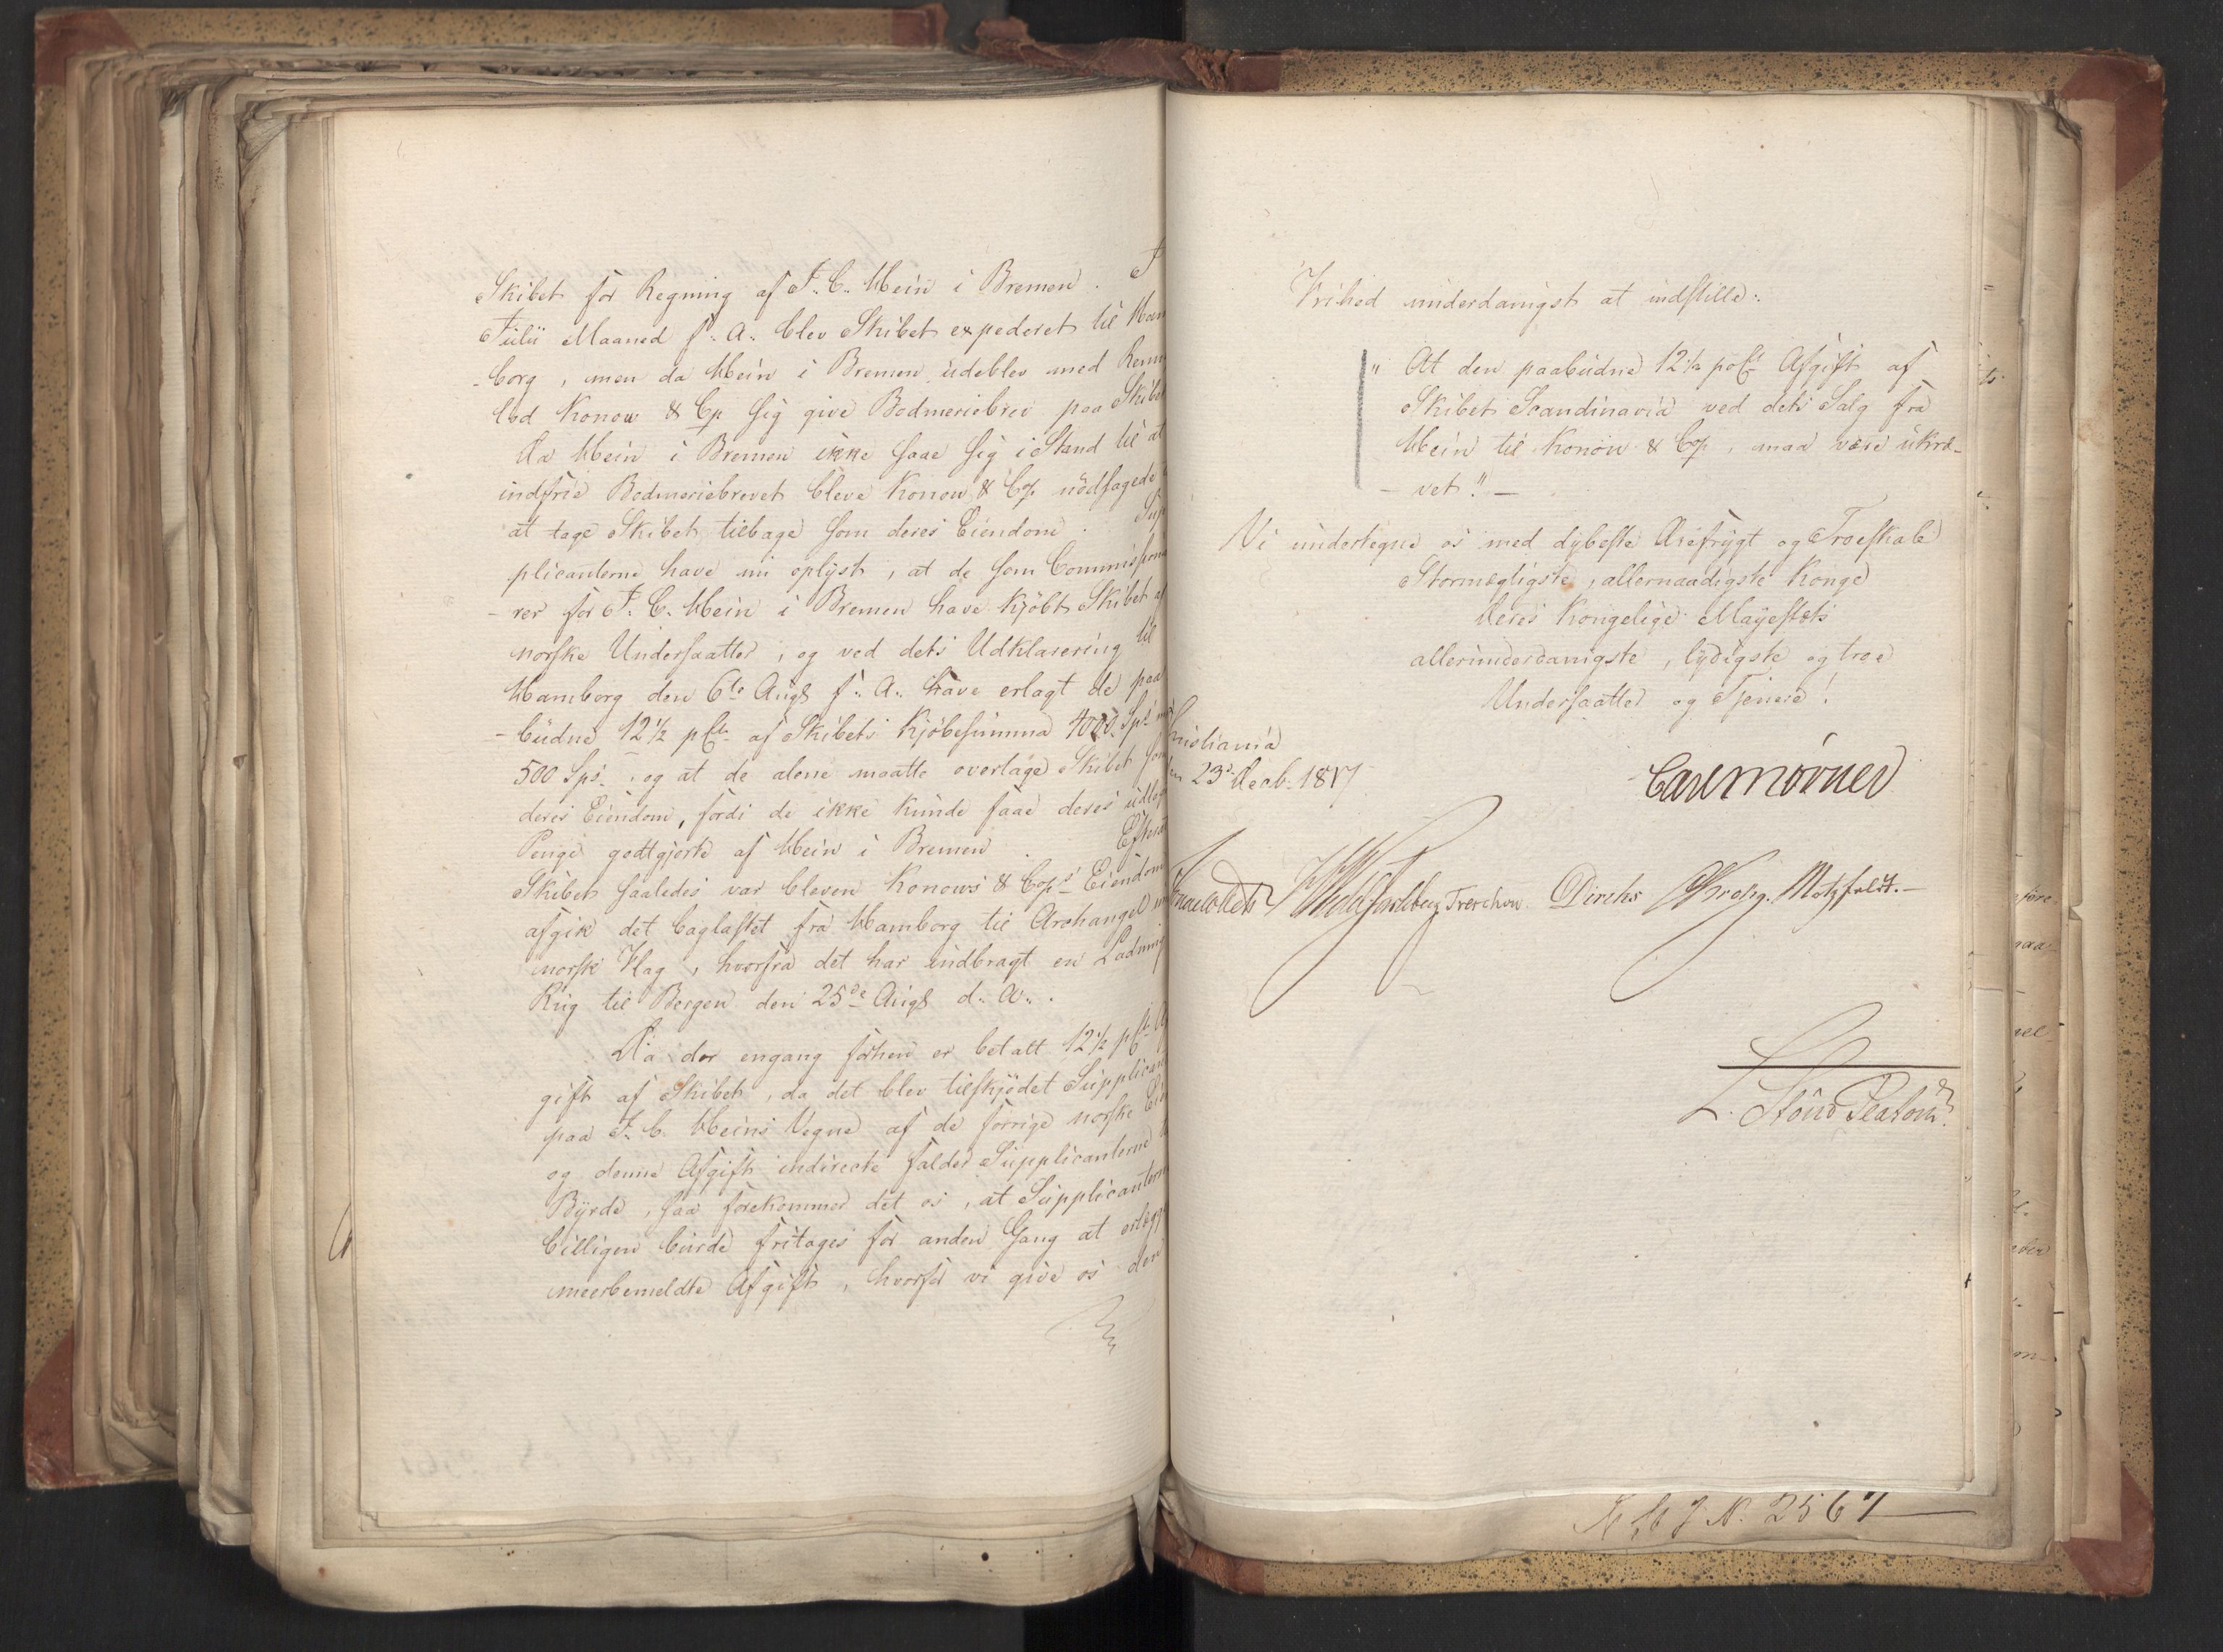 Skibet for Regning af J. C. Hein i Bremen. I
Julii Maaned f. A. blev Skibet expederet til Ham
-borg, men da Hein i Bremen udeblev med Rem
lod Konow & Cp sig give Bodmeriebrev paa Skibet
Da Hein i Bremen ikke saae sig i Stand til at
indfrie Bodmeriebrevet bleve Konow & Cp. nødsagede
at tage Skibet tilbage som deres Eiendom. Sup
plicanterne have nu oplyst, at de som Commissione
-rer for J. C. Hein i Bremen have kjöbt Skibet af
norske Undersaatter, og ved dets Udklarering til
Hamborg den 6te Augs f. A. have erlagt de paa
-budne 12½ pCt. af Skibets Kjöbesumma 4000 Sps
500 Sps., og at de alene maatte overtage Skibet som
deres Eiendom, fordi de ikke kunde faae deres udlagt
Penge godtgjorte af Hein i Bremen. Efterat
Skibet saaledes var bleven Konows & Cops Eiendom
afgik det baglastet fra Hamborg til Archangel
norsk Flag, hvorfra det har indbragt en Ladning
Rug til Bergen den 25de Augs d. A.
Da der engang forhen er betalt 12½ pCt. Af
gift af Skibet, da det blev tilskjödet Supplican
paa J. C. Heins Vegne af de forrige norske Ei
og denne Afgift indirecte falder Supplicanterne til
Byrde, saa forekommer det os, at Supplicanterne
billigen burde fritages for anden Gang at erlægge
meerbemeldte Afgift, hvorfor vi give os den
Frihed underdanigst at indstille:
"At den paabudne 12½ poCt Afgift af
Skibet Scandinavia ved dets Salg fra
Hein til Konow & Cop, maa være ukræ-
-vet." -
Vi undertegne os med dybeste Ærefrygt og Troeskab
Stormægtigste, allernaadigste Konge
Deres Kongelige Mayestæts
allerunderdanigste, lydigste og troe
Undersaatter og Tjenere!
Christiania
den 23de Decb. 1817
Carl Mörner
Sommerhielm Treschow Diriks Krohg. Motzfeldt. -
L. Stoud Platou
No. 2567